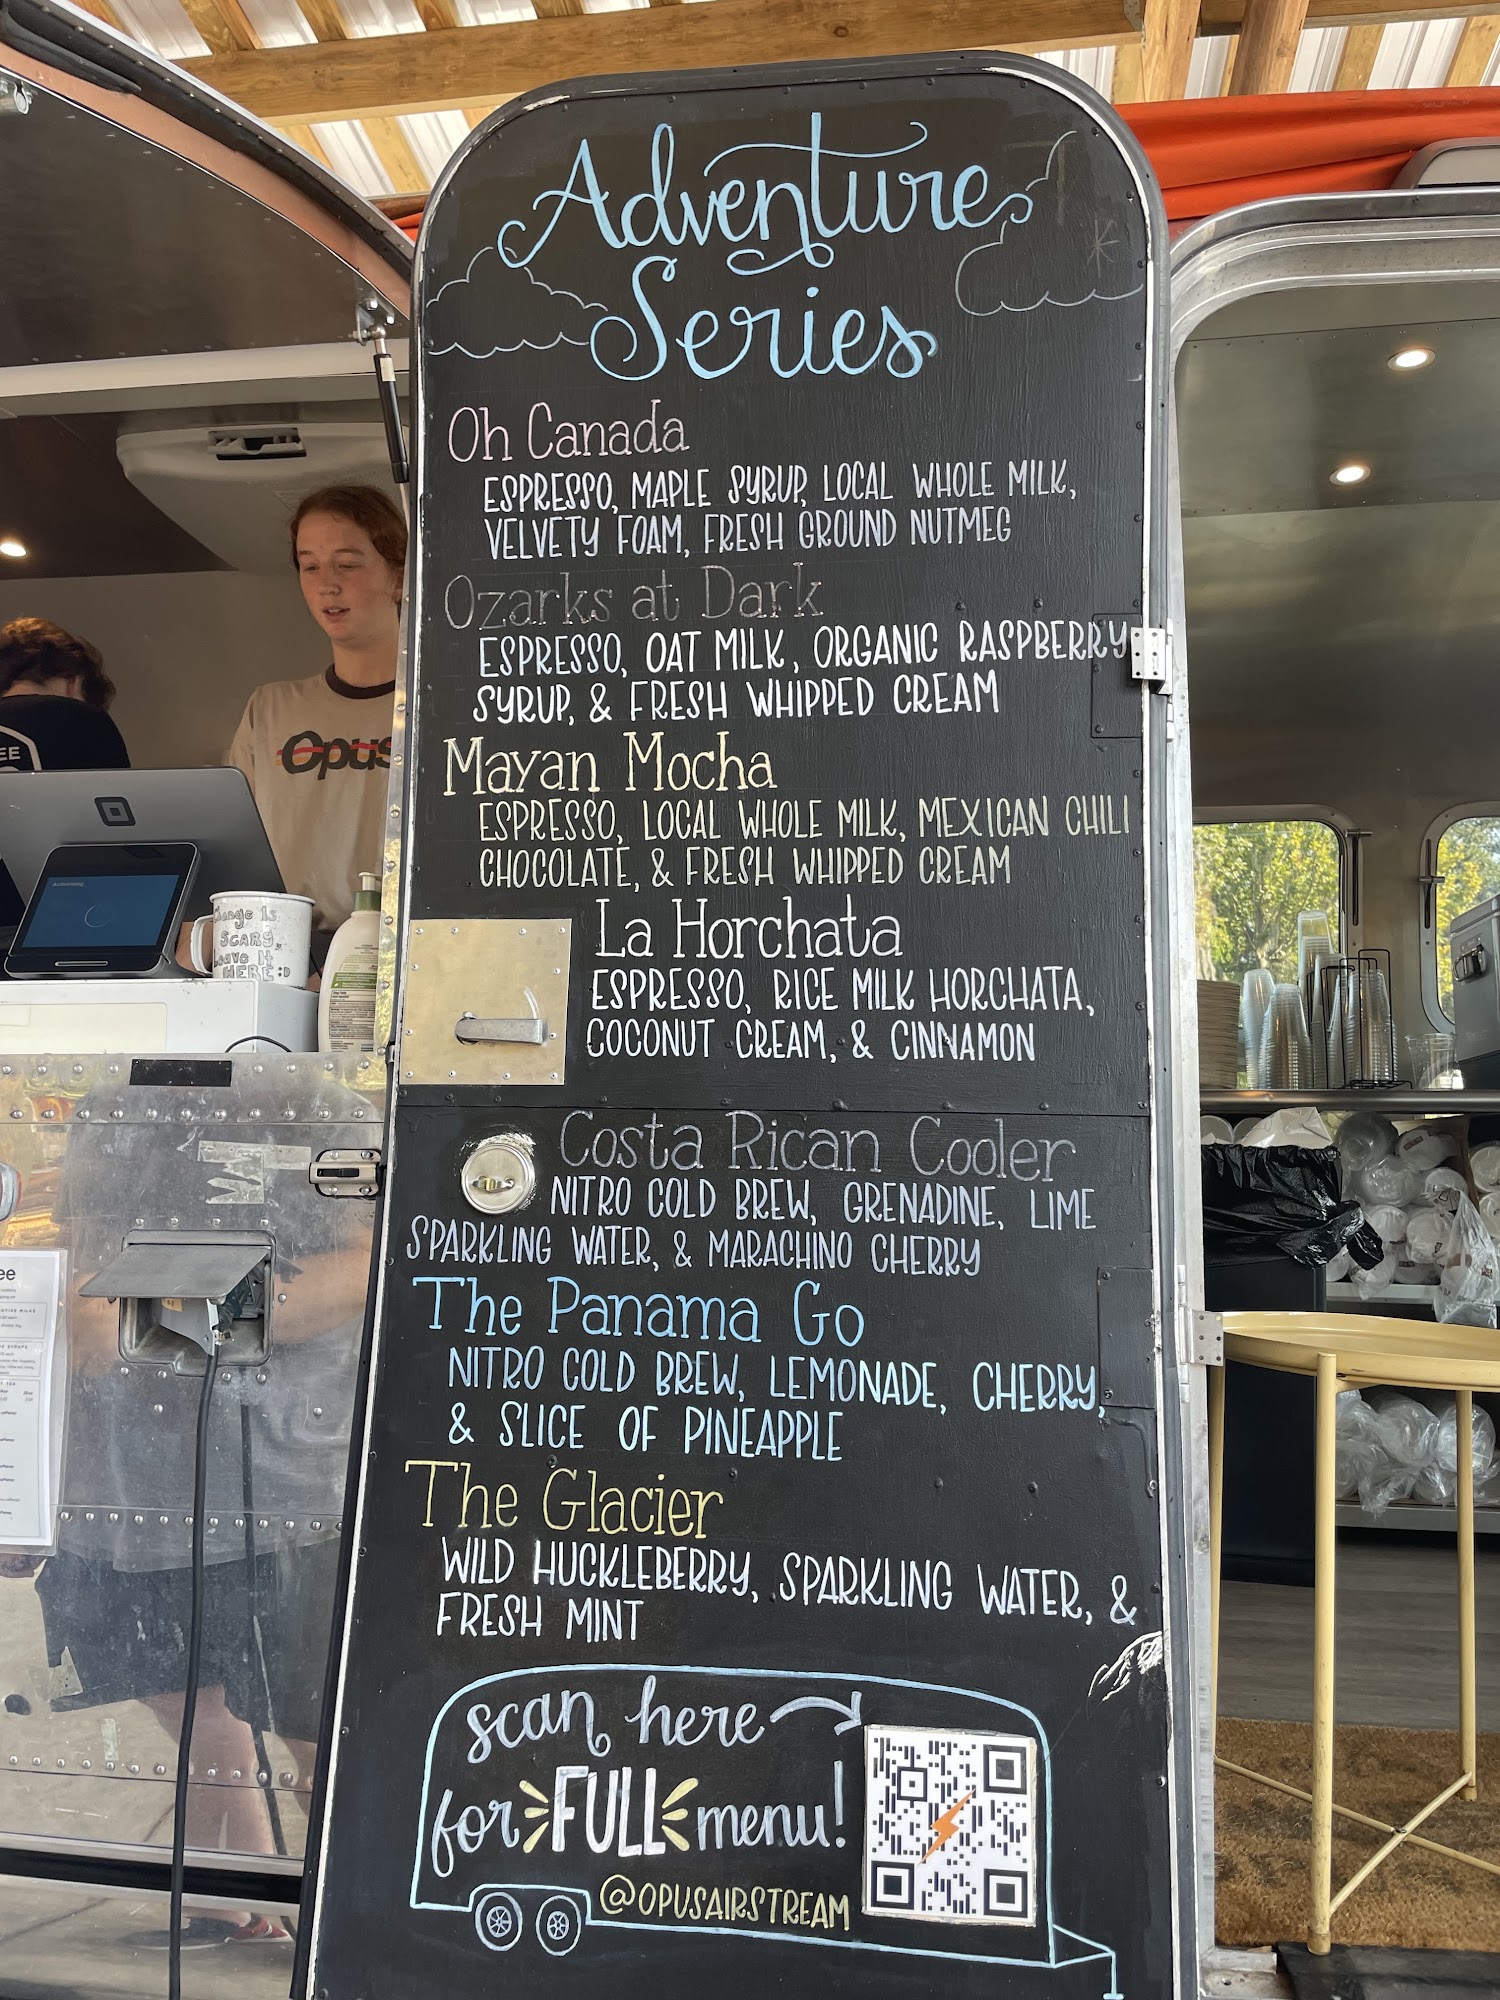 Adventure
Series
Oh Canada
ESPRESSO, MAPLE SYRUP, LOCAL WHOLE MILK,
VELVETY FOAM, FRESH GROUND NUTMEG
Ozarks at Dark
ESPRESSO, OAT MILK, ORGANIC RASPBERRY
SYRUP, & FRESH WHIPPED CREAM
Mayan Mocha
ESPRESSO, LOCAL WHOLE MILK, MEXICAN CHILI
CHOCOLATE, & FRESH WHIPPED CREAM
La Horchata
ESPRESSO, RICE MILK HORCHATA,
COCONUT CREAM, & CINNAMON
Costa Rican Cooler
NITRO COLD BREW, GRENADINE, LIME
SPARKLING WATER, & MARACHINO CHERRY
The Panama Go
NITRO COLD BREW, LEMONADE, CHERRY,
& SLICE OF PINEAPPLE
The Glacier
WILD HUCKLEBERRY, SPARKLING WATER, &
FRESH MINT
scan here
for FULL menu!
@OPUSAIRSTREAM
Opus
EE
Change is
SCARY,
Leave It
HERE :D
ee